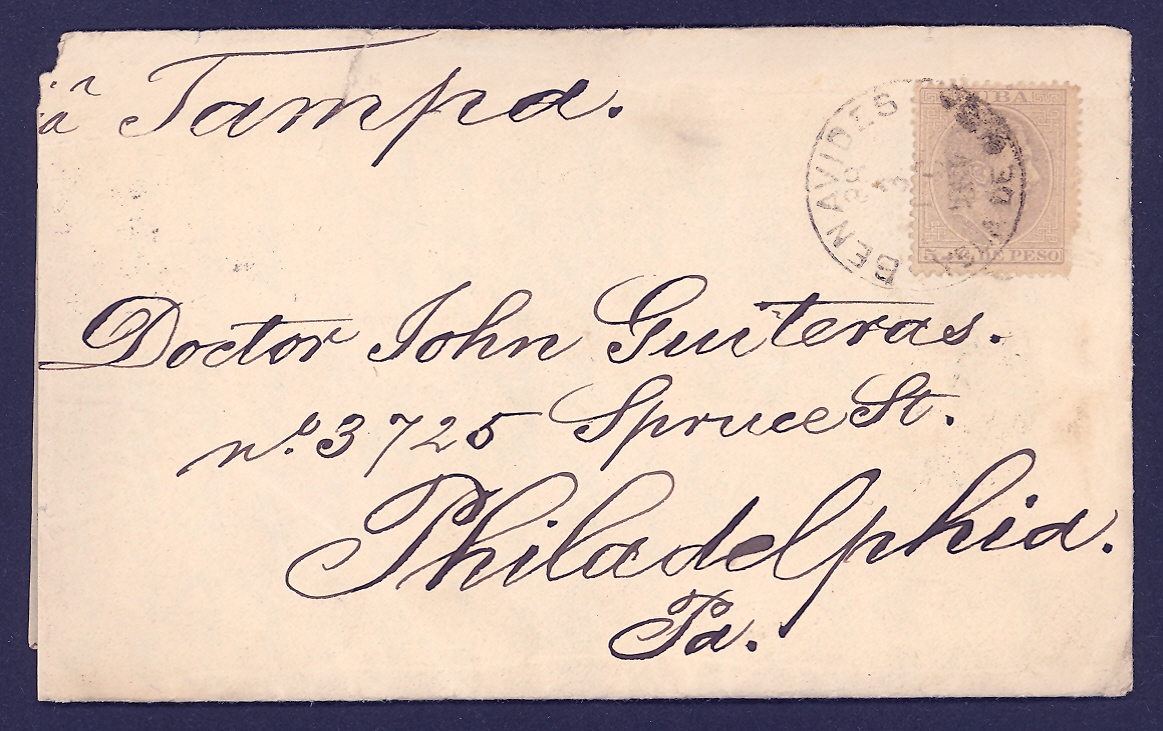 Tampa.
BENAVIDES
ISLA DE
CUBA
5 DE PESO
Doctor John Guiteras.
nº. 3725 Spruce St.
Philadelphia.
Pa.